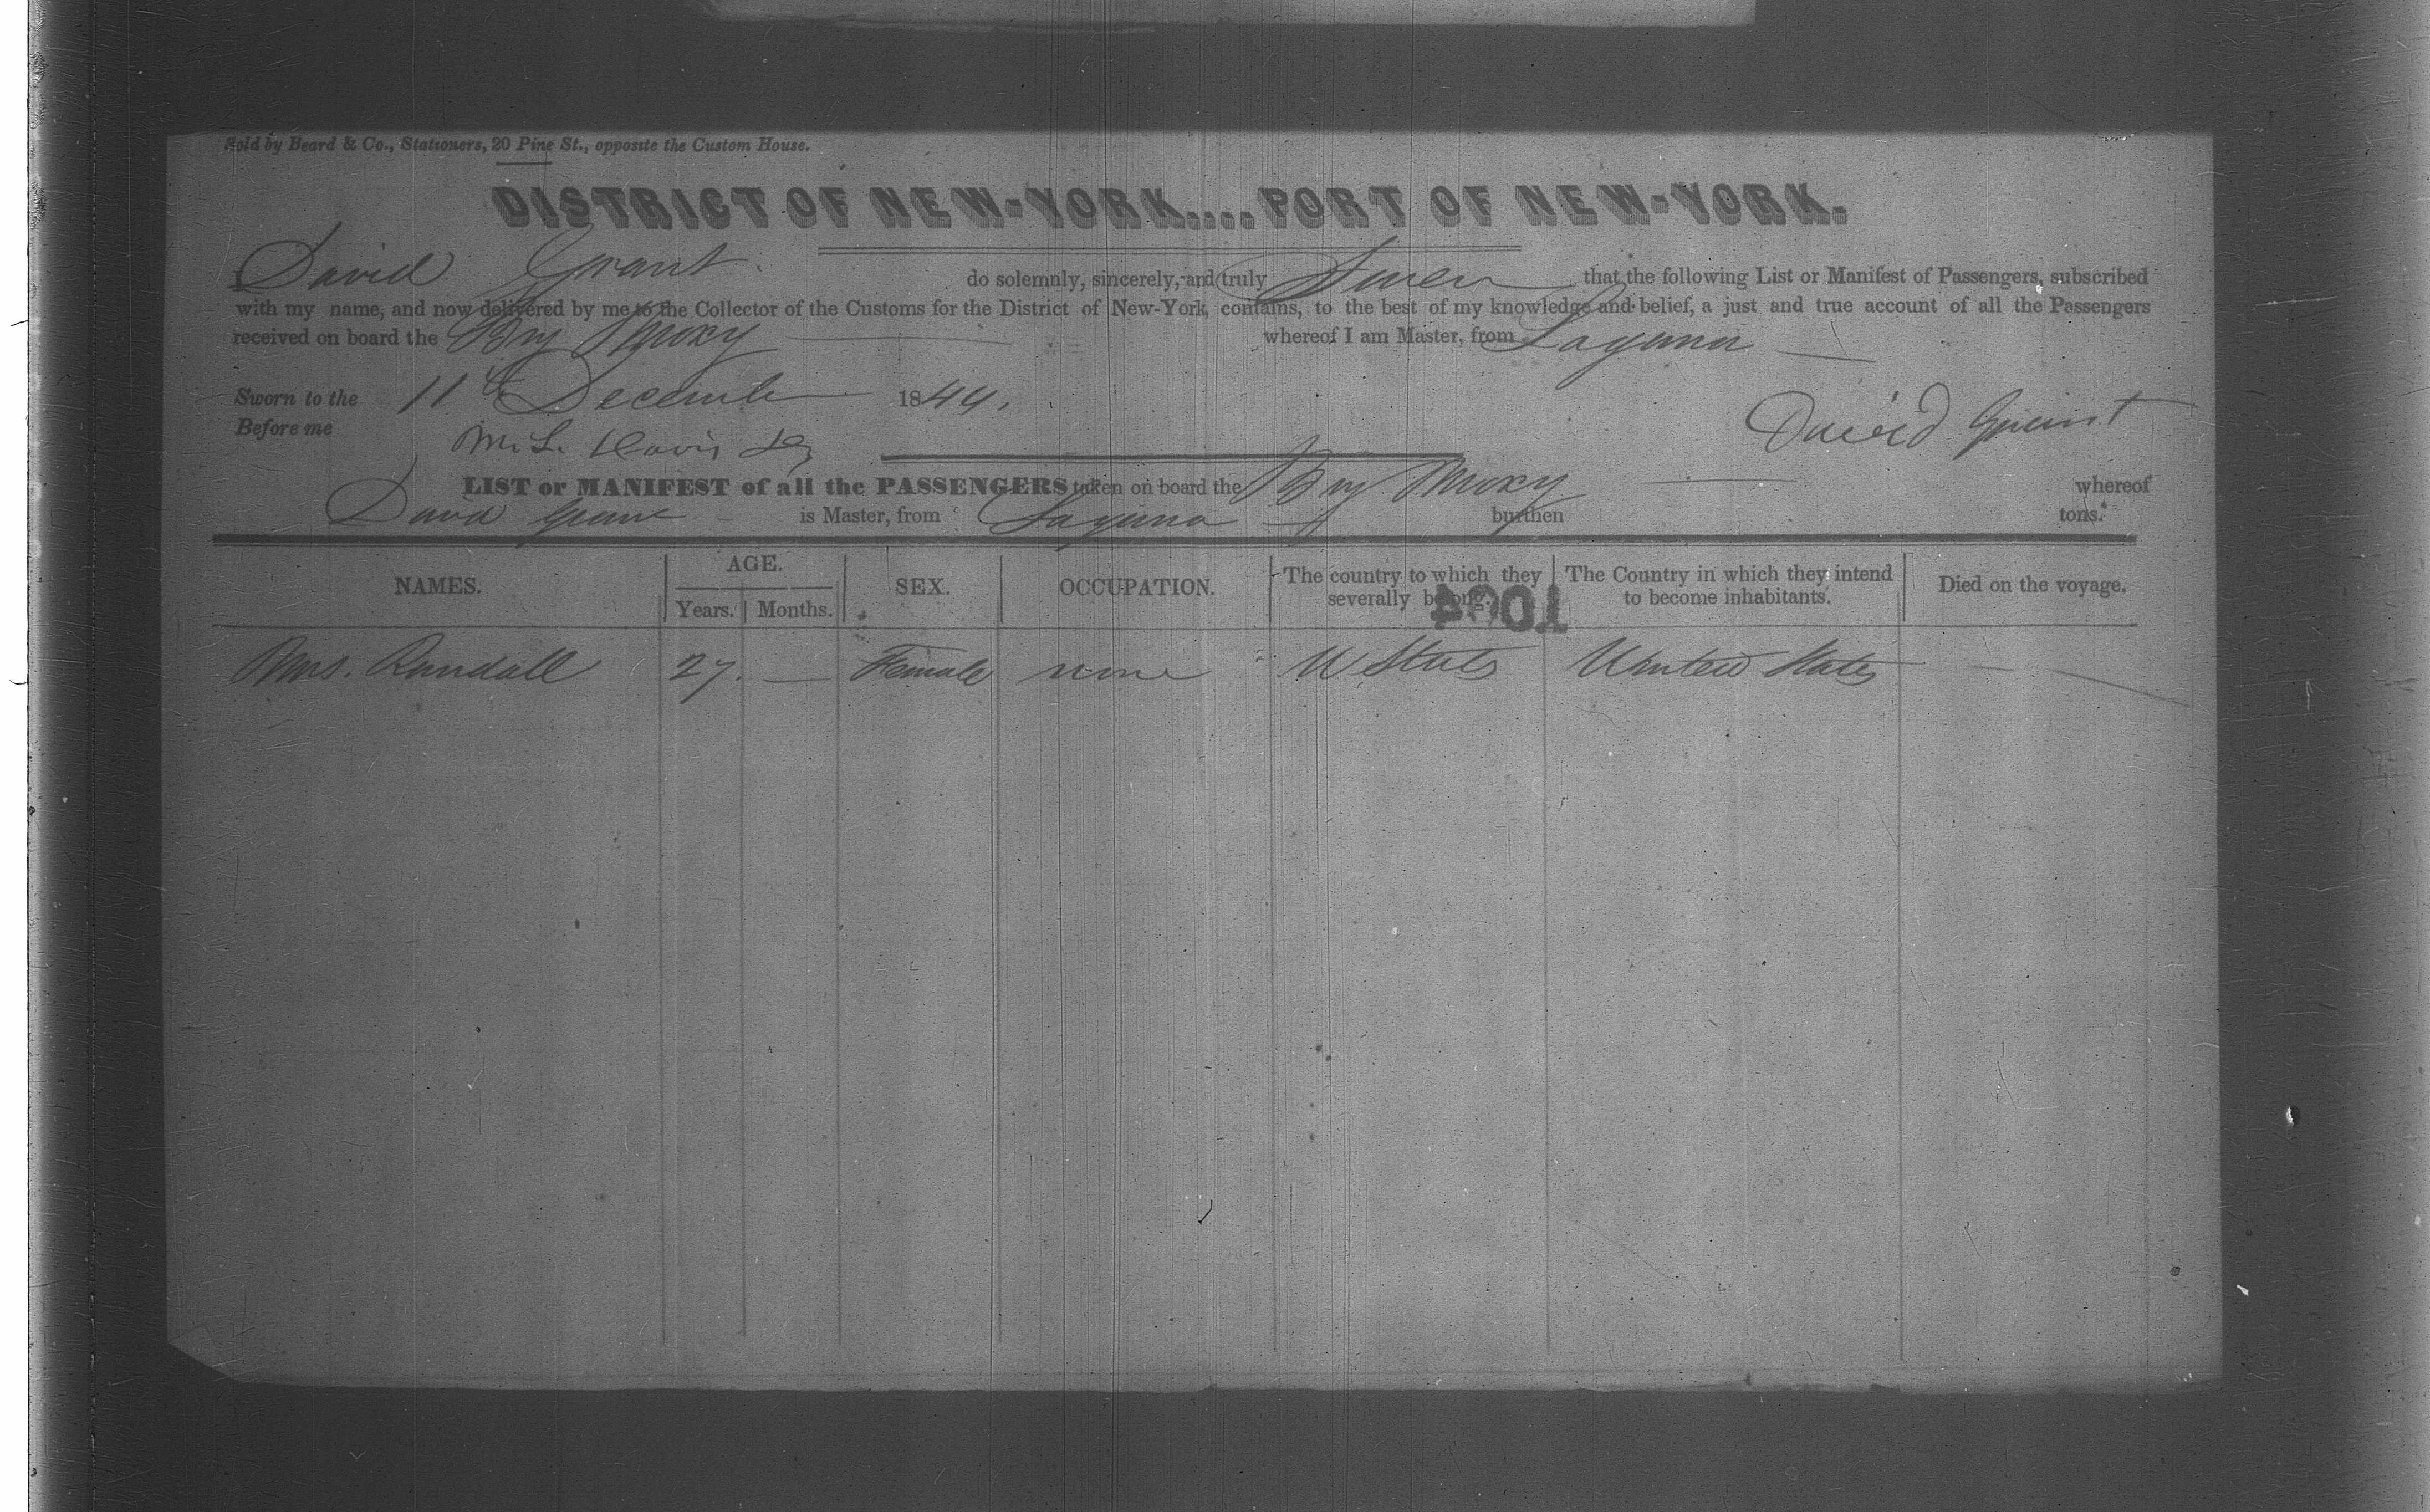 Sold by Beard & Co., Stationers, 20 Pine St., opposite the Custom House.
DISTRICT OF NEW-YORK....PORT OF NEW-YORK.
I David Grant do solemnly, sincerely, and truly Swear that the following List or Manifest of Passengers, subscribed
with my name, and now delivered by me to the Collector of the Customs for the District of New-York, contains, to the best of my knowledge and belief, a just and true account of all the Passengers
received on board the Brig whereof I am Master, from Laguna
Sworn to the 11th December 1844.
Before me M. L. Davis
David Grant
LIST or MANIFEST of all the PASSENGERS taken on board the Brig whereof
David Grant is Master, from Laguna burthen tons.
NAMES. AGE. Years. Months. SEX. OCCUPATION. The country to which they severally belong. The Country in which they intend to become inhabitants. Died on the voyage.
1004
Mrs. Randall 27. — Female none U States United States